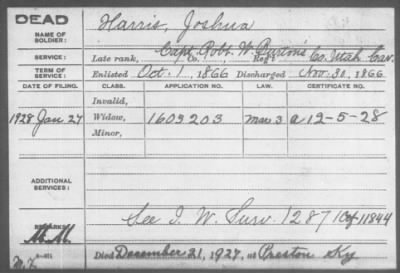 DEAD
NAME OF SOLDIER: Harris, Joshua
SERVICE: Late rank, Capt. Robt. W. Burton's Co. Utah Cav.
Co. Reg't
TERM OF SERVICE: Enlisted Oct. 1, 1866 Discharged Nov. 30, 1866
DATE OF FILING. CLASS. APPLICATION NO. LAW. CERTIFICATE NO.
Invalid,
1928 Jan 27 Widow, 1603203 Mar 3 a 12-5-28
Minor,
ADDITIONAL SERVICES:
See I. W. Surv. 12871 Ctf 11844
REMARKS:
Died December 21, 1927, at Preston